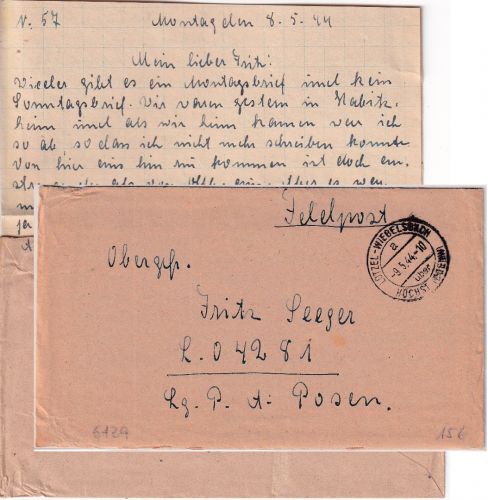 N. 57 Montag den 8.5.44
Mein lieber Fritz!
Wieder gibt es ein Montagsbrief und kein
Sonntagsbrief. Wir waren gestern in Habitz-
heim und als wir heim kamen war ich
so ab, so dass ich nicht mehr schreiben konnte
von hier aus hin zu kommen ist doch an-
Feldpost
LÜTZEL-WIEBELSBACH
a
-9.5.44-10
über
HÖCHST (ODENW)
Obergefr.
Fritz Seeger
L. 04281
Lg. P. A. Posen.
6129
15€